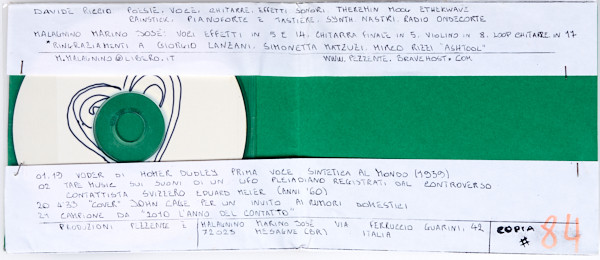 DAVIDE RICCIO POESIE, VOCE, CHITARRE, EFFETTI SONORI THEREMIN MOOG ETHERWAVE
RAINSTICK, PIANOFORTE E TASTIERE, SYNTH NASTRI RADIO ONDECORTE
MALAGNINO MARINO JOSÈ: VOCI EFFETTI IN 5 E 14, CHITARRA FINALE IN 5, VIOLINO IN 8, LOOP CHITARRE IN 17
RINGRAZIAMENTI A GIORGIO LANZANI, SIMONETTA MATZUZI, MIRCO RIZZI "ASHTOOL"
M.MALAGNINO@LIBERO.IT WWW.PEZZENTE.BRAVEHOST.COM
01.19 VODER DI HOMER DUDLEY PRIMA VOCE SINTETICA AL MONDO (1939)
02 TAPE MUSIC SUI SUONI DI UN UFO PLEIADIANO REGISTRATI DAL CONTROVERSO
CONTATTISTA SVIZZERO EDUARD MEIER (ANNI '60)
20 4'33 "COVER" JOHN CAGE PER UN INVITO AI RUMORI DOMESTICI
21 CAMPIONE DA "2010 L'ANNO DEL CONTATTO"
PRODUZIONI PEZZENTE & MALAGNINO MARINO JOSÈ VIA FERRUCCIO GUARINI, 42
72023 MESAGNE (BR) ITALIA
COPIA
# 84